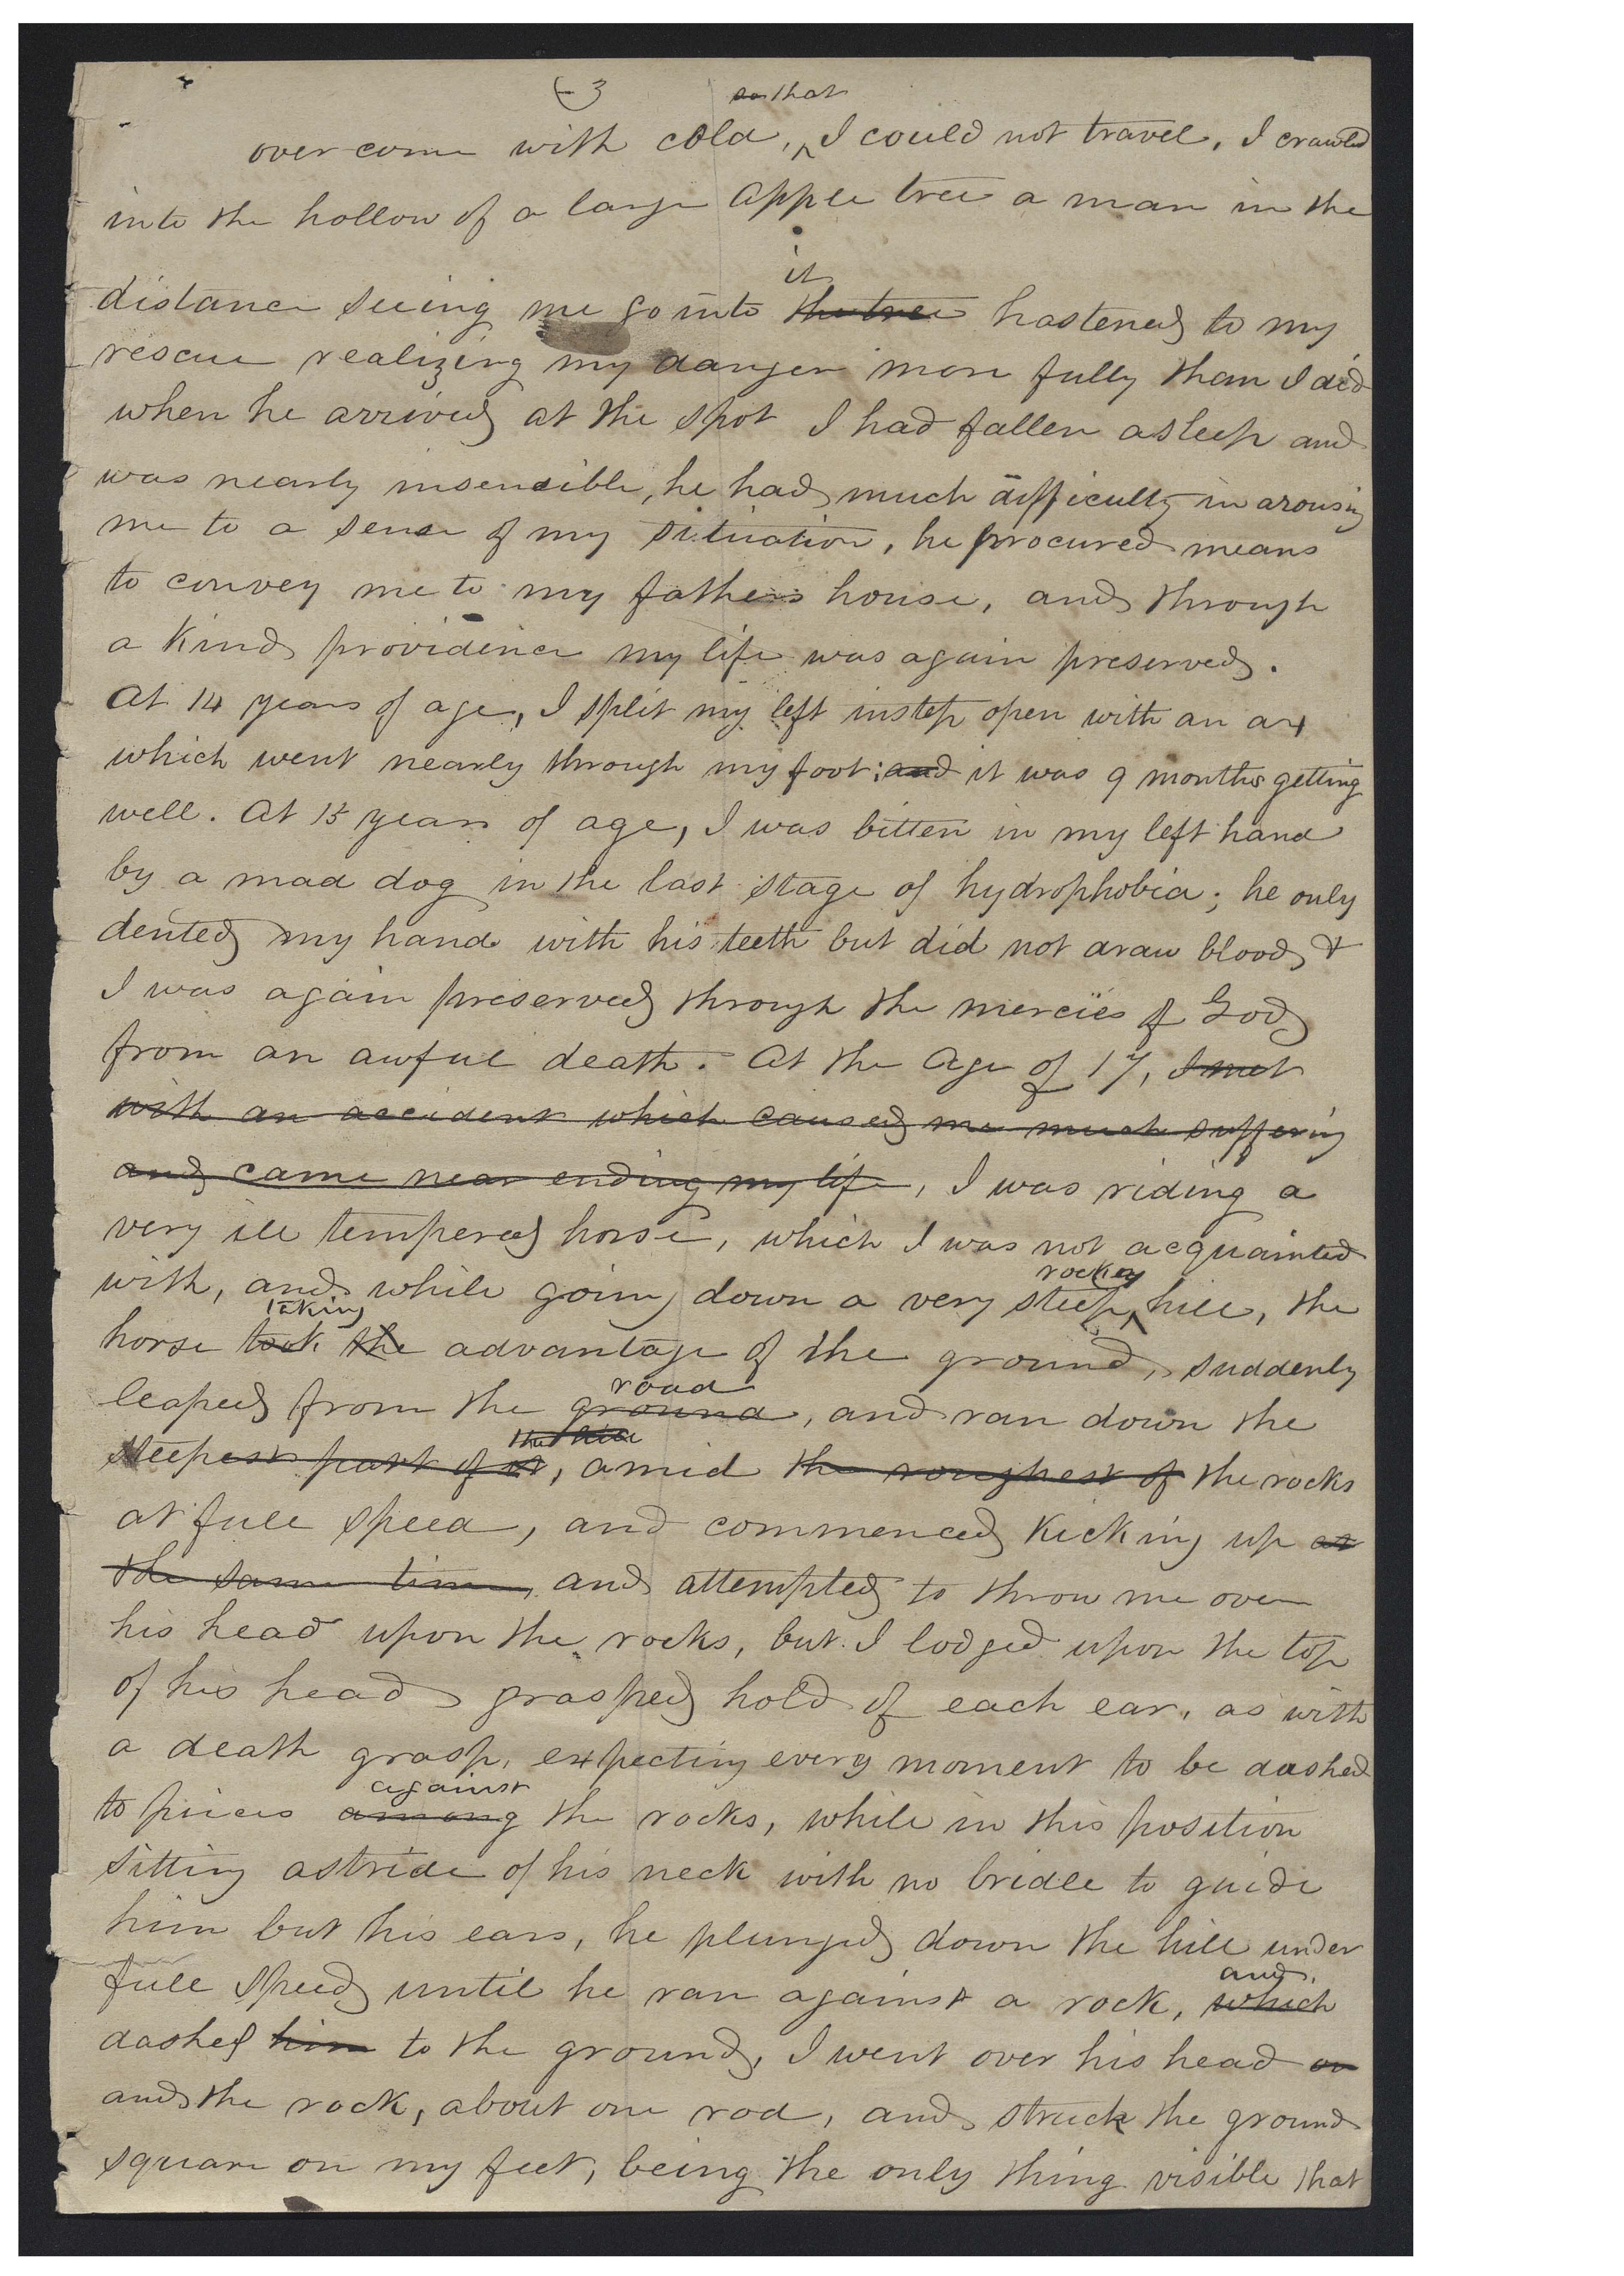 3
so that
over come with cold, ^ I could not travel, I crawled
into the hollow of a large apple tree a man in the
it
distance seeing me go into the tree hastened to my
rescue realizing my danger more fully than I did
when he arrived at the spot I had fallen asleep and
was nearly insensible, he had much difficulty in arousing
me to a sense of my situation, he procured means
to convey me to my fathers house, and through
a kind providence my life was again preserved.
At 14 years of age, I split my left instep open with an ax
which went nearly through my foot; and it was 9 months getting
well. At 15 years of age, I was bitten in my left hand
by a mad dog in the last stage of hydrophobia; he only
dented my hand with his teeth but did not draw blood, &
I was again preserved through the mercies of God
from an awful death. At the age of 17, I met
with an accident which caused me much suffering
and came near ending my life, I was riding a
very ill tempered horse, which I was not acquainted
rocky
with, and while going down a very steep ^ hill, the
taking
horse took the advantage of the ground, suddenly
road
leaped from the ground, and ran down the
the hill
steepest part of it, amid the roughest of the rocks
at full speed, and commenced kicking up at
the same time, and attempted to throw me over
his head upon the rocks, but I lodged upon the top
of his head grasped hold of each ear, as with
a death grasp, expecting every moment to be dashed
against
to pieces among the rocks, while in this position
sitting astride of his neck with no bridle to guide
him but his ears, he plunged down the hill under
full speed until he ran against a rock, which
and
dashed him to the ground, I went over his head on
and the rock, about one rod, and struck the ground
square on my feet, being the only thing visible that